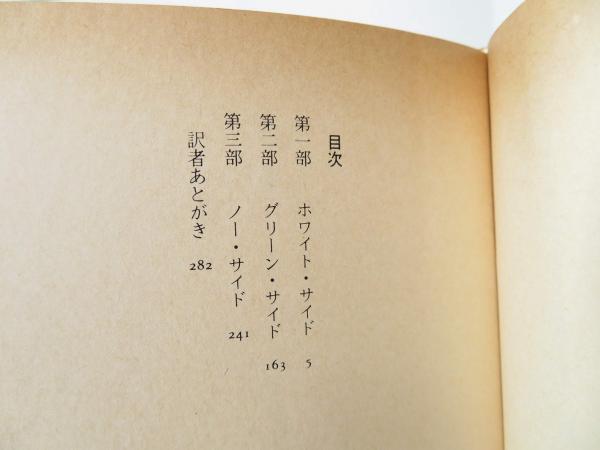 目次
第一部 ホワイト・サイド 5
第二部 グリーン・サイド 163
第三部 ノー・サイド 241
訳者あとがき 282